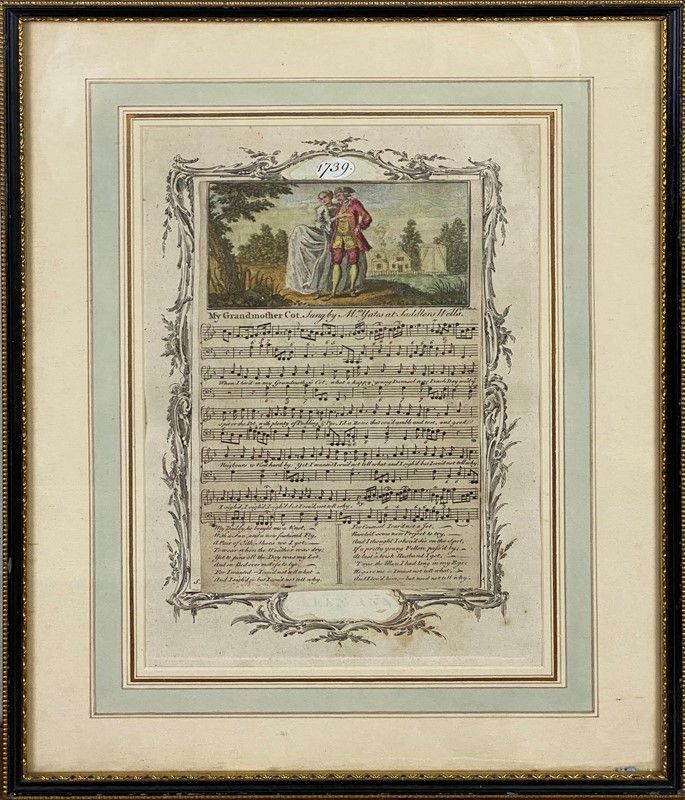 1739.
My Grandmother Cot. Sung by Mrs. Yates at Sadillers Wells.
When I liv'd in my Grandmother's Cot, what a happy young Damsel was I, each Day
spit or the Pot, with plenty of Pudding & Pye, I'd a Horse that cou'd amble and trot, and good
Neighbours to hard by. Yet I wanted I cou'd not tell what and I sigh'd but I cou'd not tell why
I sigh'd, I sigh'd, I sigh'd but I cou'd not tell why.
My Daddy he bought me a Knot,
With a Fan, and a new fashion'd Fly,
A Pair of Silk Shoes too I got,
To wear when the Weather was dry;
Yet to pine all the Day was my Lot,
And in Bed ever restless to lye,
For I wanted — I cou'd not tell what
And I sigh'd — but I cou'd not tell why.
For Counsel I car'd not a Jot,
Resolv'd some new Project to try,
And I thought I shou'd die on the spot,
If a pretty young Fellow pass'd by;
At last a brisk Husband I got,
'Twas the Man I had long in my Eye;
He gave me — I must not tell what,
And I lov'd him — but need not tell why.